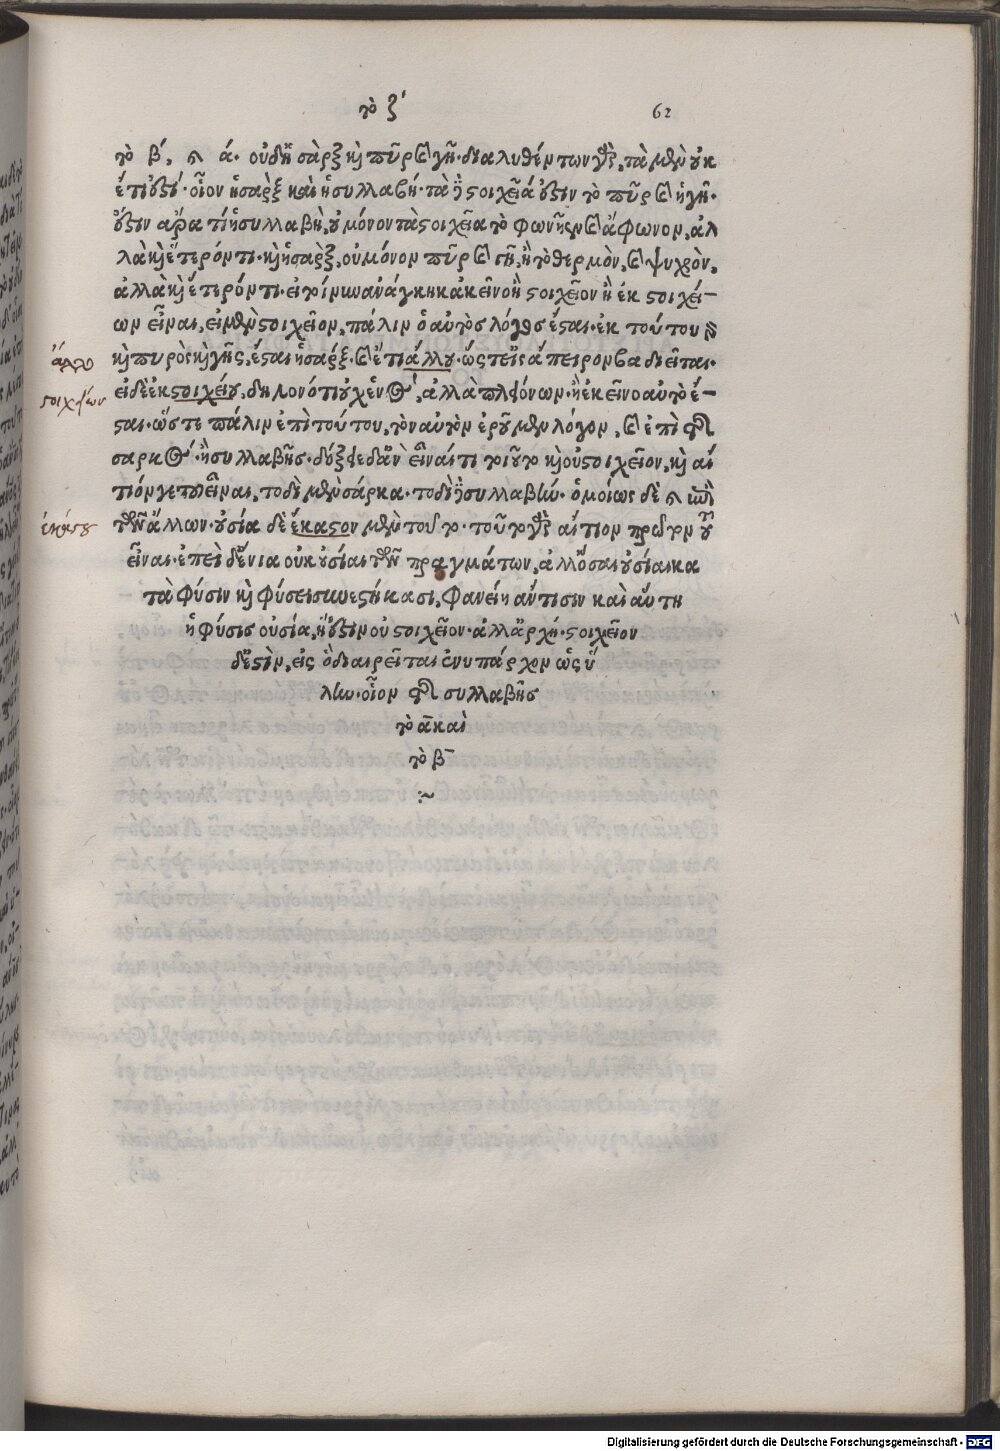 τὸ ζ´ 62
τὸ β´. καὶ ά. οὐδὲ ἡ σὰρξ καὶ πῦρ καὶ γῆ. διαλυθέντων γὰρ, τὰ μὲν οὐκ
έτι ἐστί. οἷον ἡ σὰρξ καὶ ἡ συλλαβή. τὰ δὲ στοιχεῖά ἐστιν τὸ πῦρ καὶ ἡ γῆ.
ἔστιν ἄρα τὶ ἡ συλλαβὴ, οὐ μόνον τὰ στοιχεῖα τὸ φωνῆεν καὶ ἄφωνον, ἀλ
λὰ καὶ ἕτερόν τι. καὶ ἡ σαρξ, οὐ μόνον πῦρ καὶ γῆ, ἢ τὸ θερμὸν, καὶ ψυχρὸν,
ἀλλὰ καὶ ἕτερόν τι. εἰ τοίνυν ἀνάγκη κἀκεῖνο ἢ στοιχεῖον ἢ ἐκ στοιχεί-
ων εἶναι, εἰ μὲν στοιχεῖον, πάλιν ὁ αὐτὸς λόγος έσται. ἐκ τούτου γὰρ
καὶ πυρὸς καὶ γῆς, ἔσται ἡ σάρξ. καὶ ἔτι ἄλλου. ὥστε εἰς ἄπειρον βαδιεῖται.
εἰ δὲ ἐκ στοιχείου, δῆλον ὅτι οὐχ ἑνὸς, ἀλλὰ πλειόνων. ἢ ἐκεῖνο αὐτὸ έ-
σται. ὥστε πάλιν ἐπὶ τούτου, τὸν αὐτὸν ἐροῦμεν λόγον, καὶ ἐπὶ τῆς
σαρκὸς. ἢ συλλαβῆς. δόξειε δ' ἂν εἶναι τι τοῦτο καὶ οὐ στοιχεῖον, καὶ αἴ
τιόν γε τοῦ εἶναι, τοδὶ μὲν σάρκα. τοδὶ δὲ συλλαβήν. ὁμοίως δὲ καὶ ἐπὶ
τῶν ἄλλων. οὐσία δὲ ἑκάστου μὲν τοῦτο. τοῦτο γὰρ αἴτιον πρῶτον τοῦ
εἶναι. ἐπεὶ δ' ἔνια οὐκ οὐσίαι τῶν πραγμάτων, ἀλλ' ὅσαι οὐσίαι κα
τὰ φύσιν καὶ φύσει συνεστήκασι, φανείη ἄν τισιν καὶ αὕτη
ἡ φύσις οὐσία, ἥ ἐστιν οὐ στοιχεῖον. ἀλλ' ἀρχή. στοιχεῖον
δ' ἐστὶν, εἰς ὃ διαιρεῖται ἐνυπάρχον ὡς ὕ
λην. οἷον τῆς συλλαβῆς
τὸ α καὶ
τὸ β
:~
ἄλλο
στοιχείων
ἑκάστου